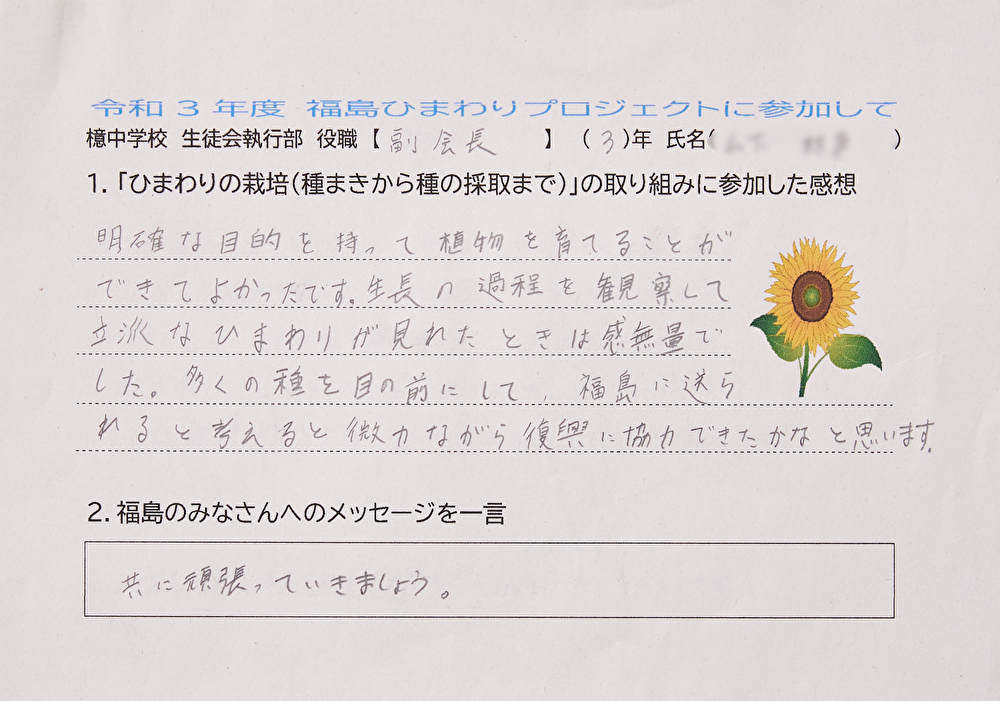 令和3年度 福島ひまわりプロジェクトに参加して
檍中学校 生徒会執行部 役職【 副会長 】 (3)年 氏名( )
1.「ひまわりの栽培(種まきから種の採取まで)」の取り組みに参加した感想
明確な目的を持って植物を育てることが
できてよかったです。生長の過程を観察して
立派なひまわりが見れたときは感無量で
した。多くの種を目の前にして、福島に送ら
れると考えると微力ながら復興に協力できたかなと思います。
2.福島のみなさんへのメッセージを一言
共に頑張っていきましょう。